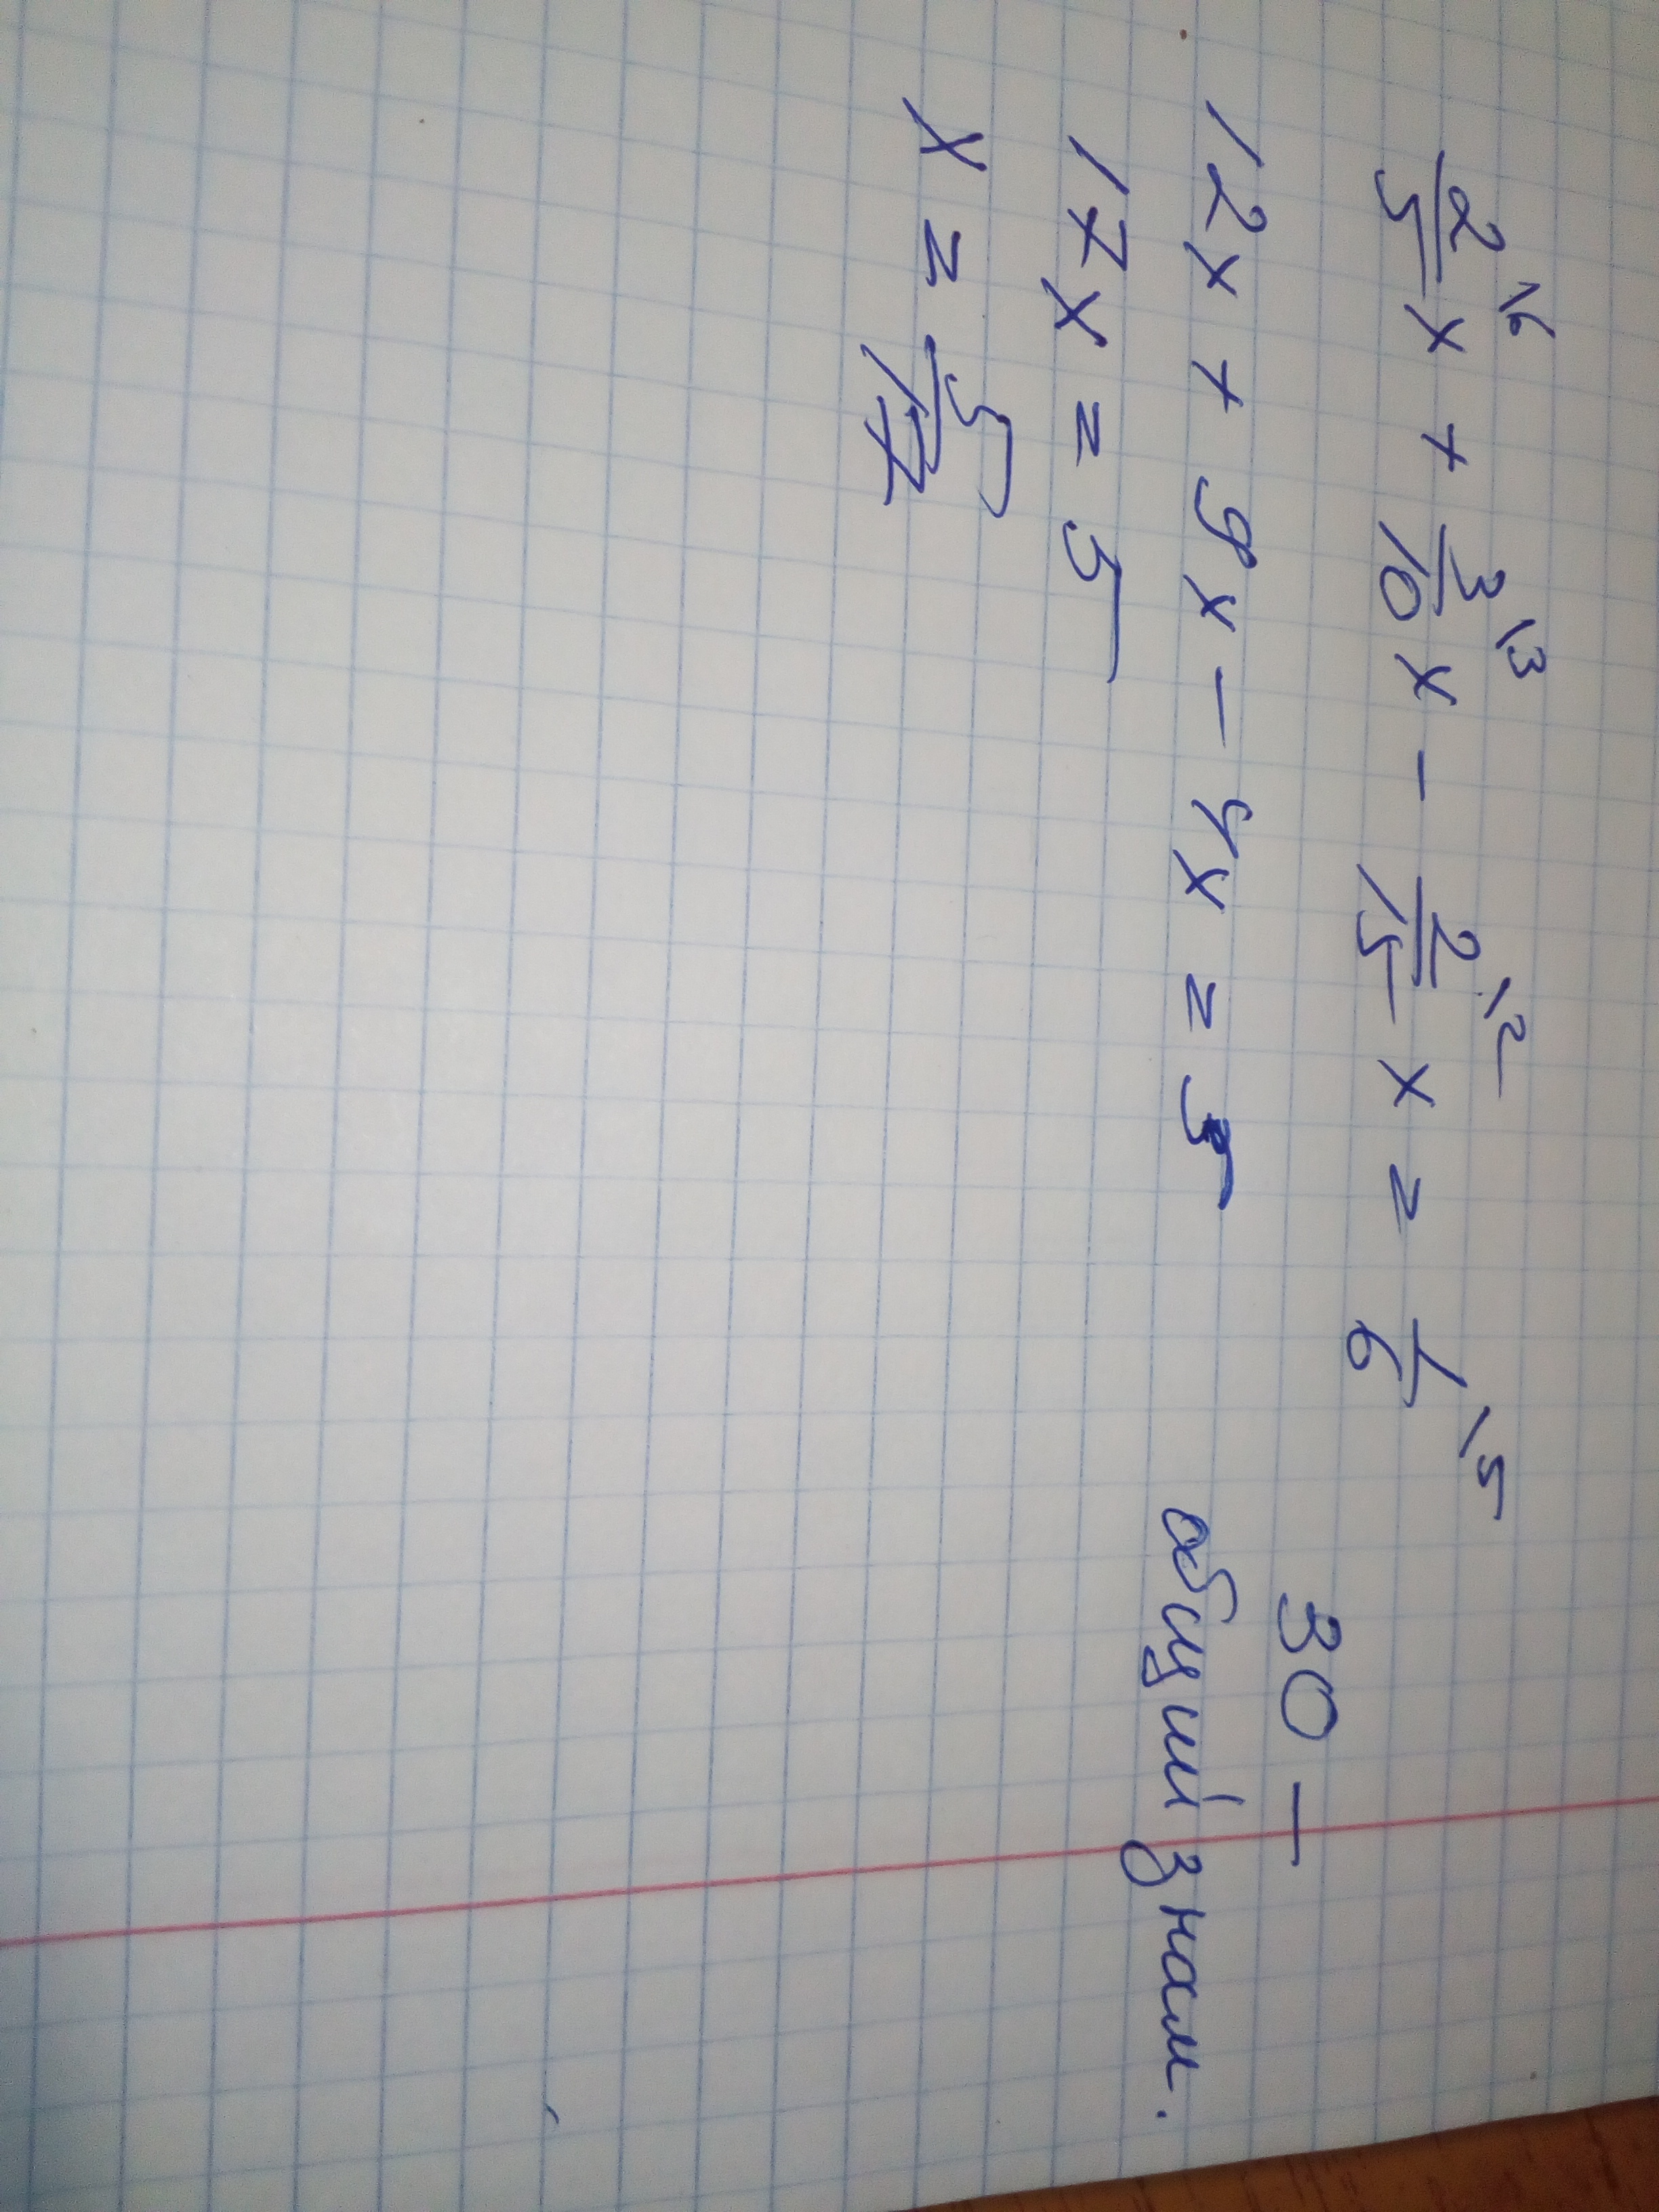 2/5\6 x + 3/10\3 x - 2/15\2 x = 1/6\5
30 -
общий знам.
12x + 9x - 4x = 5
17x = 5
x = 5/17